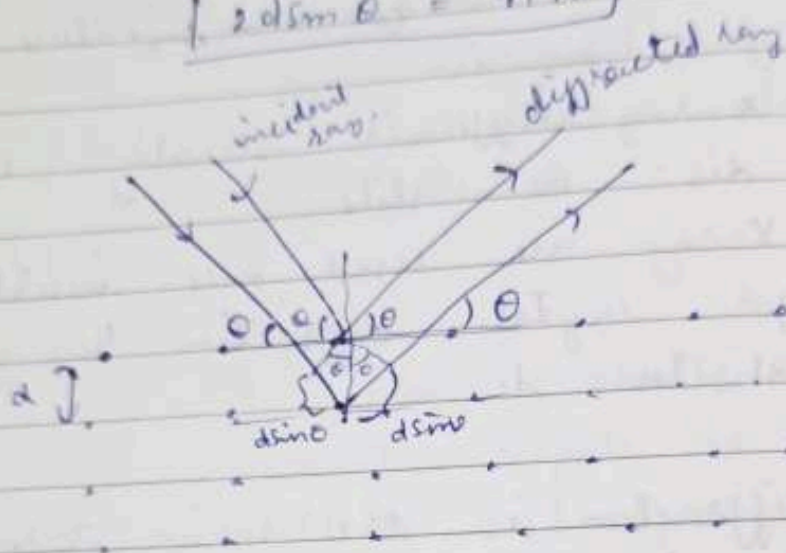 2 d sin θ =
incident ray.
diffracted ray
θ θ θ θ
θ θ
d
dsinθ dsinθ